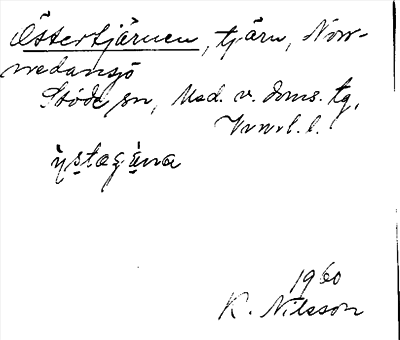 Östertjärnen, tjärn, Norr-
medansjö
Stöde sn, Med. v. doms. tg,
Vnrl. l.
1960
K. Nilsson